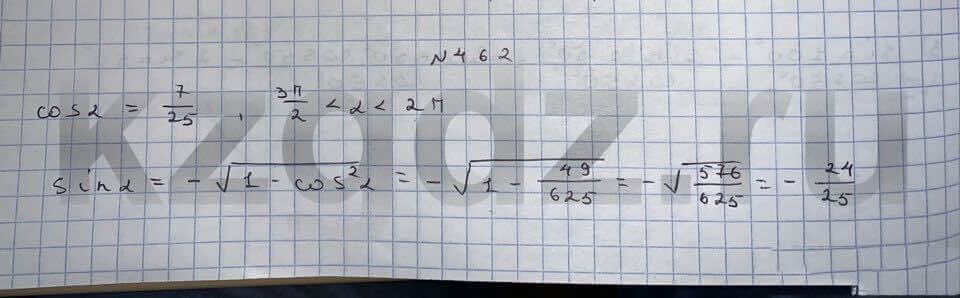 N 4 6 2
cos α = 7/25 , 3π/2 < α < 2π
sin α = -√(1 - cos²α) = -√(1 - 49/625) = -√(576/625) = - 24/25
kzgdz.ru